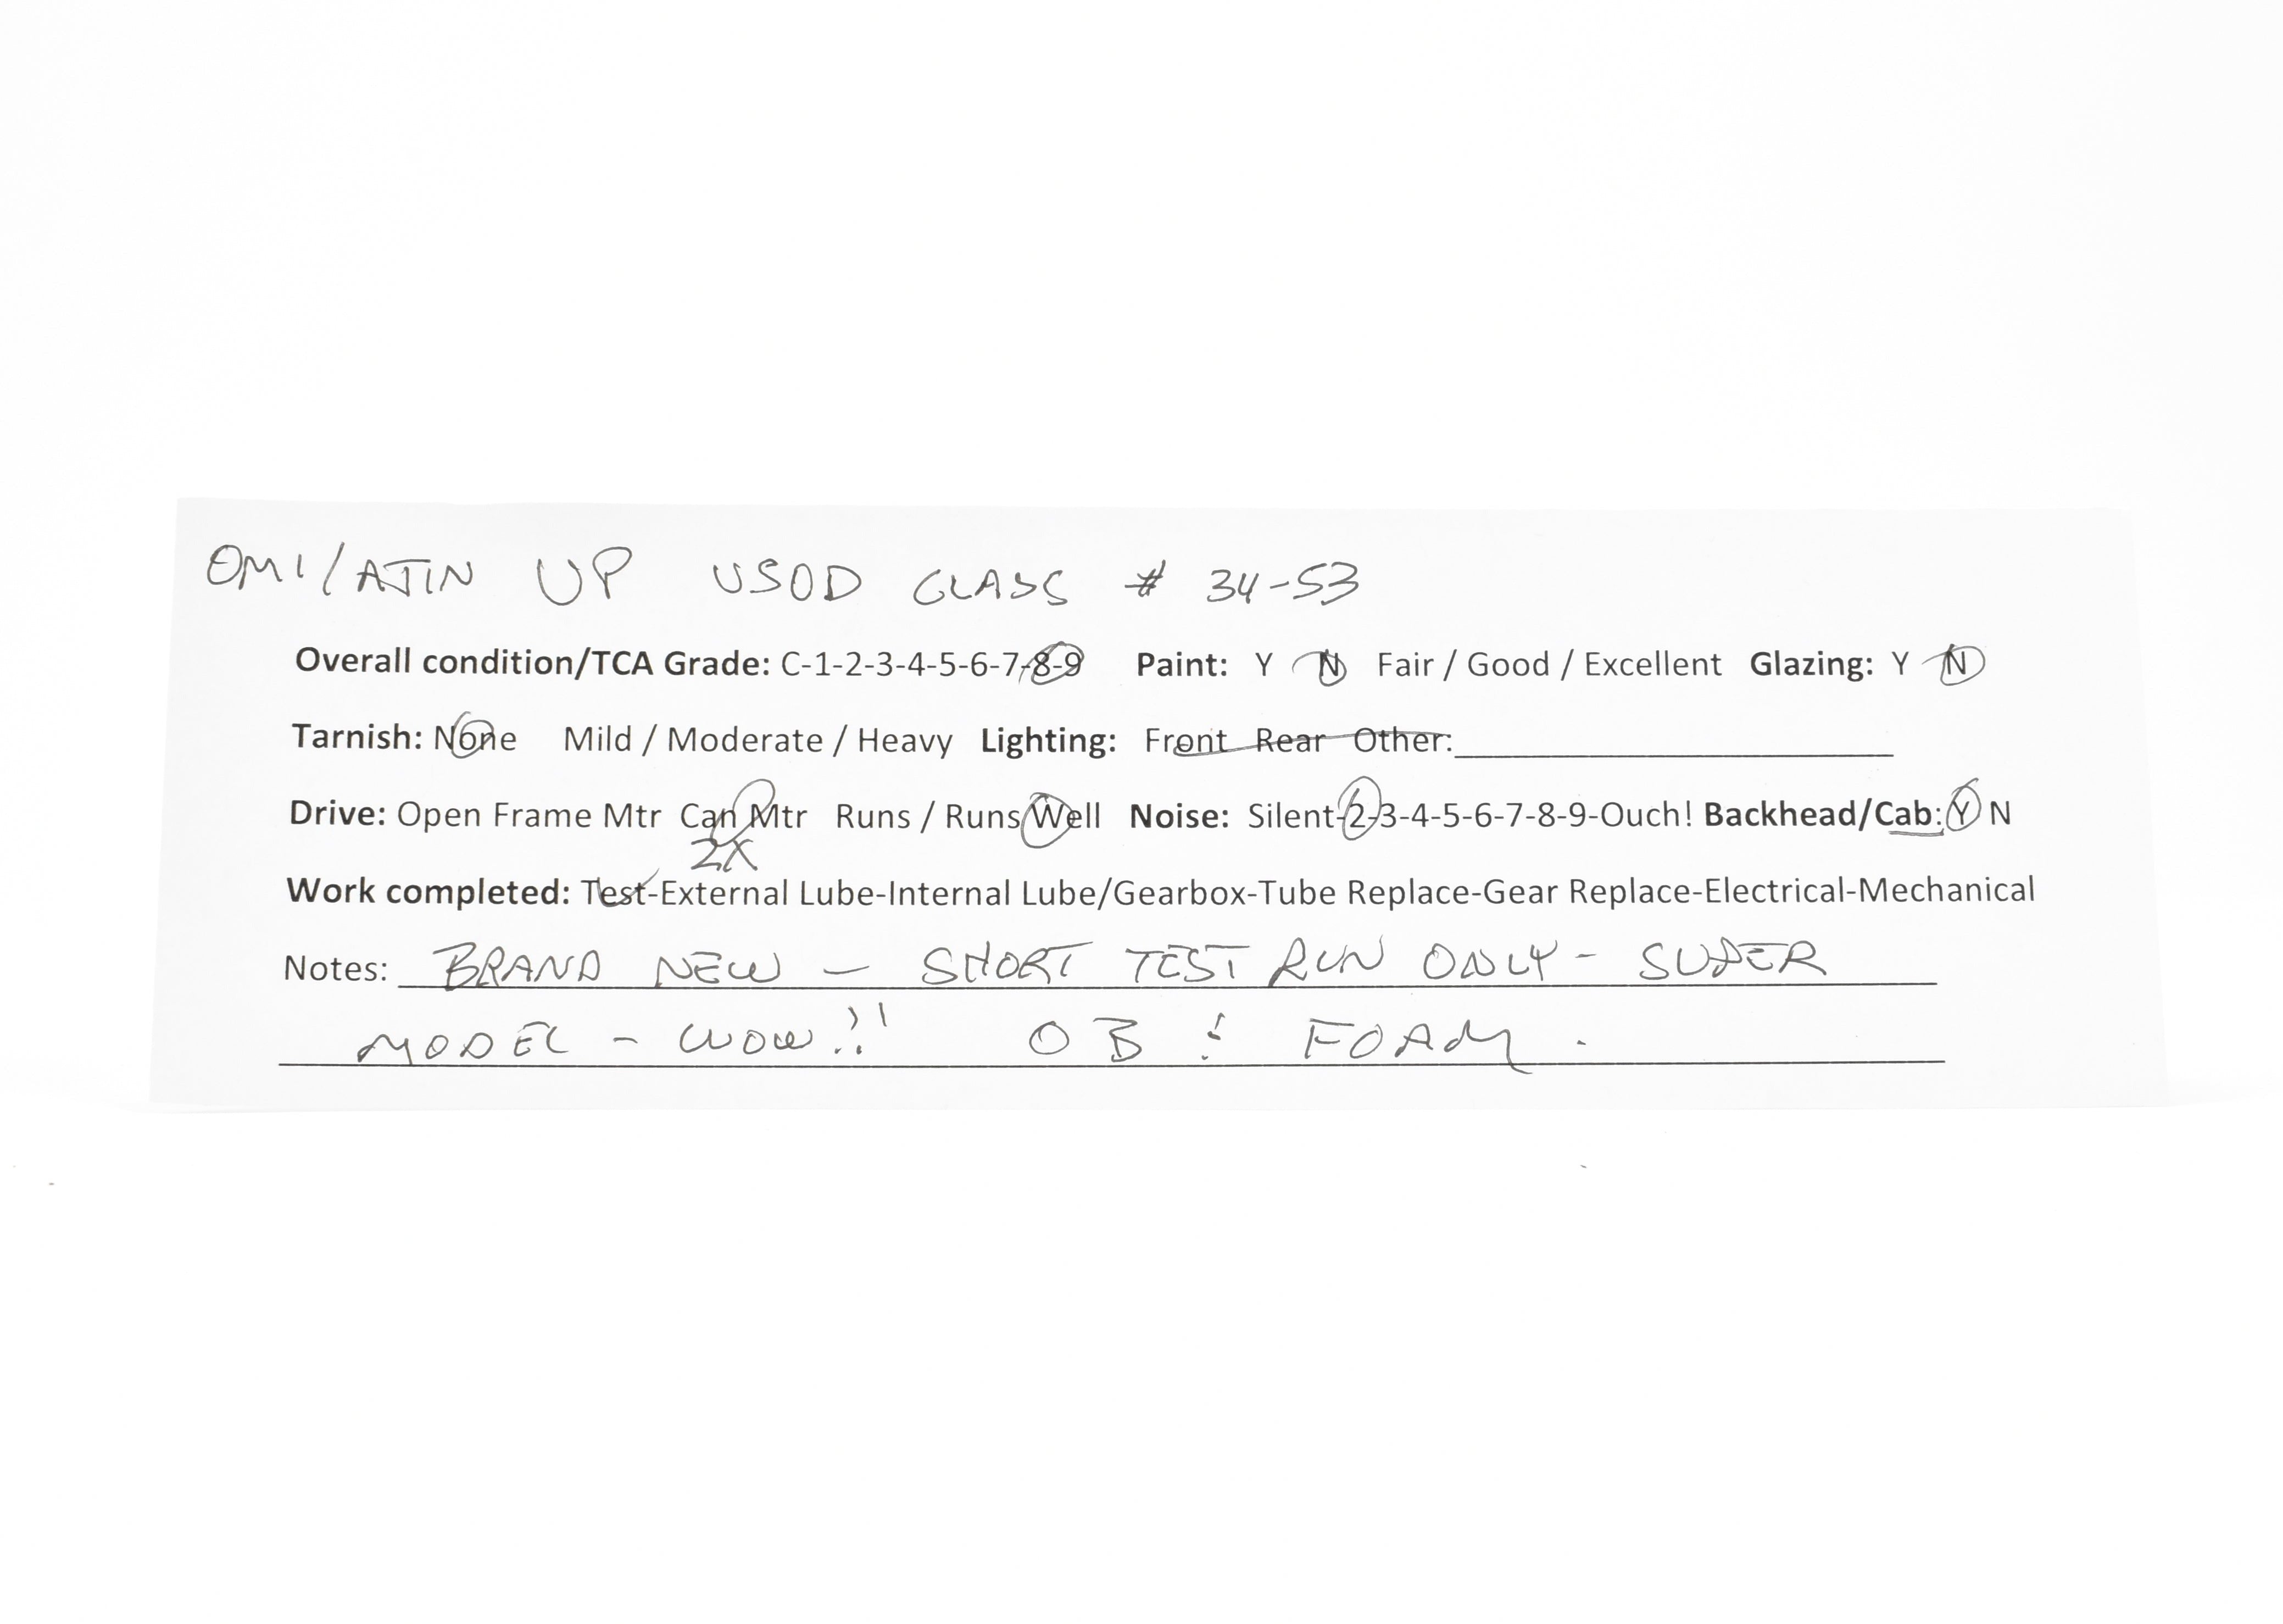 OMI/AJIN UP USOD CLASS # 34-53
Overall condition/TCA Grade: C-1-2-3-4-5-6-7-8-9 Paint: Y N Fair / Good / Excellent Glazing: Y N
Tarnish: None Mild / Moderate / Heavy Lighting: Front Rear Other:
Drive: Open Frame Mtr Can Mtr Runs / Runs Well Noise: Silent-2-3-4-5-6-7-8-9-Ouch! Backhead/Cab: Y N
2X
Work completed: Test-External Lube-Internal Lube/Gearbox-Tube Replace-Gear Replace-Electrical-Mechanical
Notes: BRAND NEW - SHORT TEST RUN ONLY - SUPER
MODEL - WOW!! OB & FOAM.